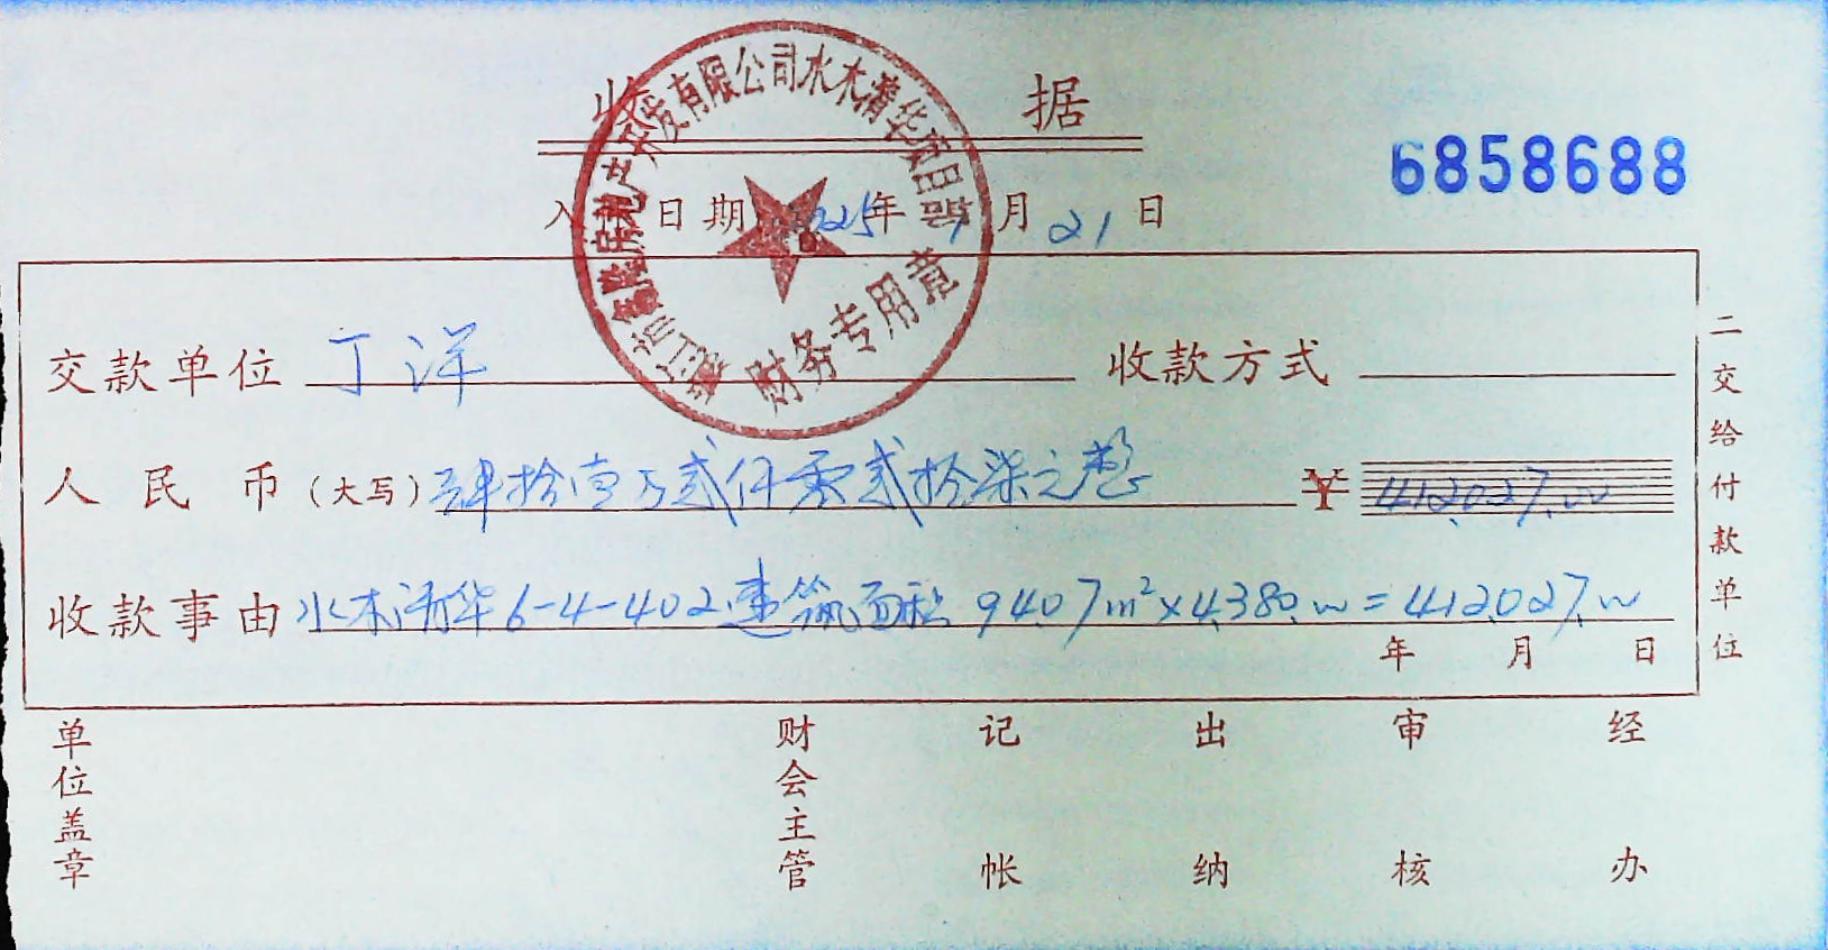 收 据
6858688
入 日期 2025年 月 21 日
房地产开发有限公司水木清华项目部
财务专用章
交款单位 丁洋 收款方式
人民币(大写)肆拾壹万贰仟零贰拾柒元整 ¥ 412027.00
收款事由 水木清华6-4-402建筑面积 94.07m²×4380.00=412027.00
年 月 日
二交给付款单位
单位盖章 财会主管 记帐 出纳 审核 经办